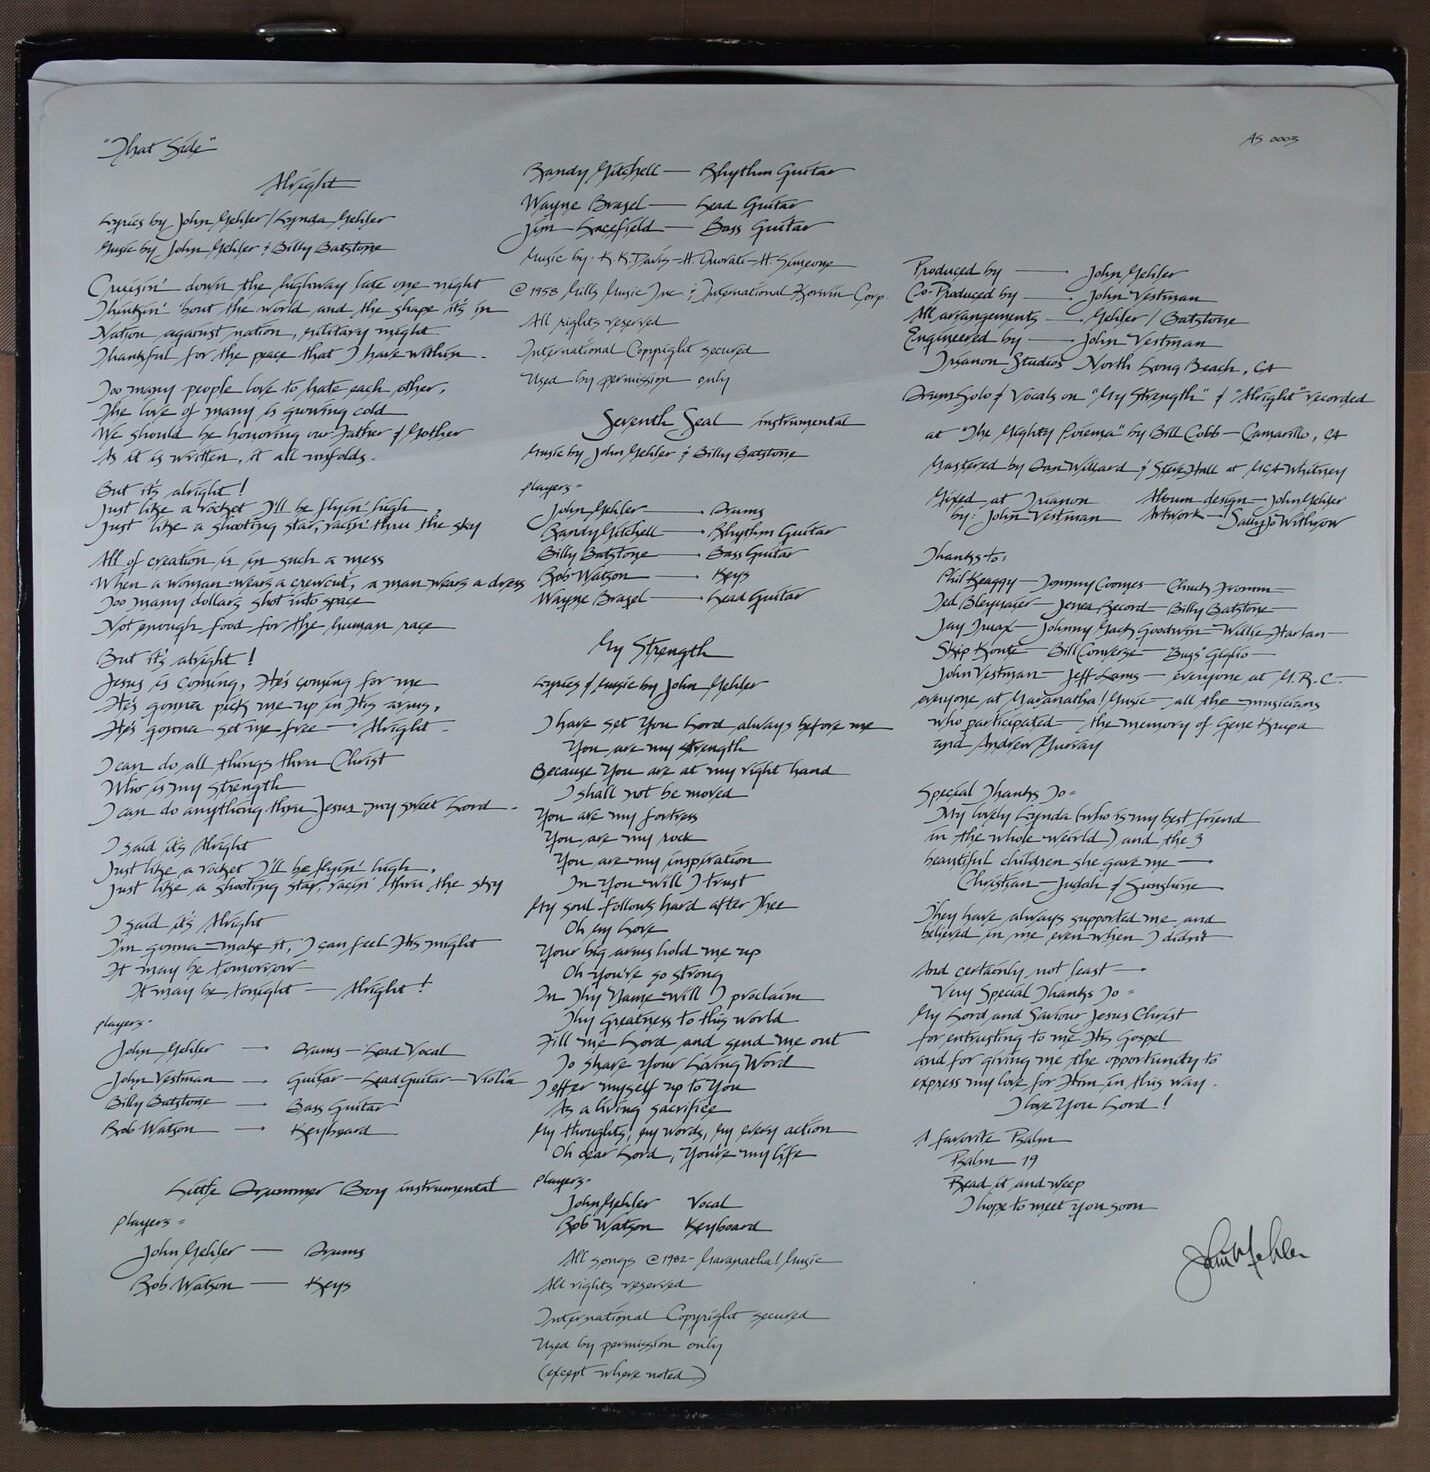 "That Side"
Alright
Lyrics by John Mehler / Lynda Mehler
Music by John Mehler & Billy Batstone
Cruisin' down the highway late one night
Thinkin' 'bout the world and the shape it's in
Nation against nation, military might
Thankful for the peace that I have within.
Too many people love to hate each other,
The love of many is growing cold
We should be honoring our Father & Mother
As it is written, it all unfolds.
But it's alright!
Just like a rocket I'll be flyin' high,
Just like a shooting star, racin' thru the sky
All of creation is in such a mess
When a woman wears a crewcut, a man wears a dress
Too many dollars shot into space
Not enough food for the human race
But it's alright!
Jesus is coming, He's coming for me
He's gonna pick me up in His arms,
He's gonna set me free — Alright.
I can do all things thru Christ
Who is my strength
I can do anything thru Jesus my sweet Lord.
I said it's Alright
Just like a rocket I'll be flyin' high,
Just like a shooting star, racin' thru the sky
I said it's Alright
I'm gonna make it, I can feel His might
It may be tomorrow
It may be tonight — Alright!
players=
John Mehler → Drums — Lead Vocal
John Vestman → Guitar — Lead Guitar — Violin
Billy Batstone → Bass Guitar
Rob Watson → Keyboard
Little Drummer Boy instrumental
players=
John Mehler — Drums
Rob Watson — Keys
Randy Mitchell — Rhythm Guitar
Wayne Brasel — Lead Guitar
Jim Lacefield — Bass Guitar
Music by: K.K. Davis-H. Onorati-H. Simeone
© 1958 Mills Music Inc & International Korwin Corp.
All rights reserved
International Copyright secured
Used by permission only
Seventh Seal instrumental
Music by John Mehler & Billy Batstone
players=
John Mehler → Drums
Randy Mitchell → Rhythm Guitar
Billy Batstone → Bass Guitar
Rob Watson → Keys
Wayne Brasel → Lead Guitar
My Strength
Lyrics & Music by John Mehler
I have set You Lord always before me
You are my strength
Because You are at my right hand
I shall not be moved
You are my fortress
You are my rock
You are my inspiration
In You will I trust
My soul follows hard after Thee
Oh my Love
Your big arms hold me up
Oh you're so strong
In Thy Name will I proclaim
Thy Greatness to this world
Fill me Lord and send me out
To share Your Living Word
I offer myself up to You
As a living sacrifice
My thoughts, my words, my every action
Oh dear Lord, You're my life
players=
John Mehler Vocal
Rob Watson Keyboard
All songs © 1982- Maranatha! Music
All rights reserved
International Copyright secured
Used by permission only
(except where noted)
AS 0003
Produced by → John Mehler
Co-Produced by → John Vestman
All arrangements → Mehler / Batstone
Engineered by → John Vestman
Trianon Studios North Long Beach, CA
Drum Solo & Vocals on "My Strength" & "Alright" recorded
at "The Mighty Poiema" by Bill Cobb — Camarillo, CA
Mastered by Dan Willard & Steve Hall at MCA Whitney
Mixed at Trianon Album design → John Mehler
by: John Vestman Artwork → Sally Jo Withrow
Thanks to:
Phil Keaggy — Tommy Coomes — Chuck Fromm —
Ted Bleymaier — Jenea Record — Billy Batstone —
Jay Truax — Johnny Mack Goodwin — Willie Harlan —
Skip Konte — Bill Converse — "Bugs" Giglio —
John Vestman — Jeff Lams — everyone at M.R.C. —
everyone at Maranatha! Music — all the musicians
who participated — the memory of Gene Krupa
and Andrew Murray
Special Thanks To =
My lovely Lynda (who is my best friend
in the whole world) and the 3
beautiful children she gave me —
Christian — Judah & Sunshine
They have always supported me and
believed in me even when I didn't
And certainly not least —
Very Special Thanks To =
My Lord and Saviour Jesus Christ
for entrusting to me His Gospel
and for giving me the opportunity to
express my love for Him in this way.
I love You Lord!
A favorite Psalm
Psalm 19
Read it and weep
I hope to meet you soon
John Mehler